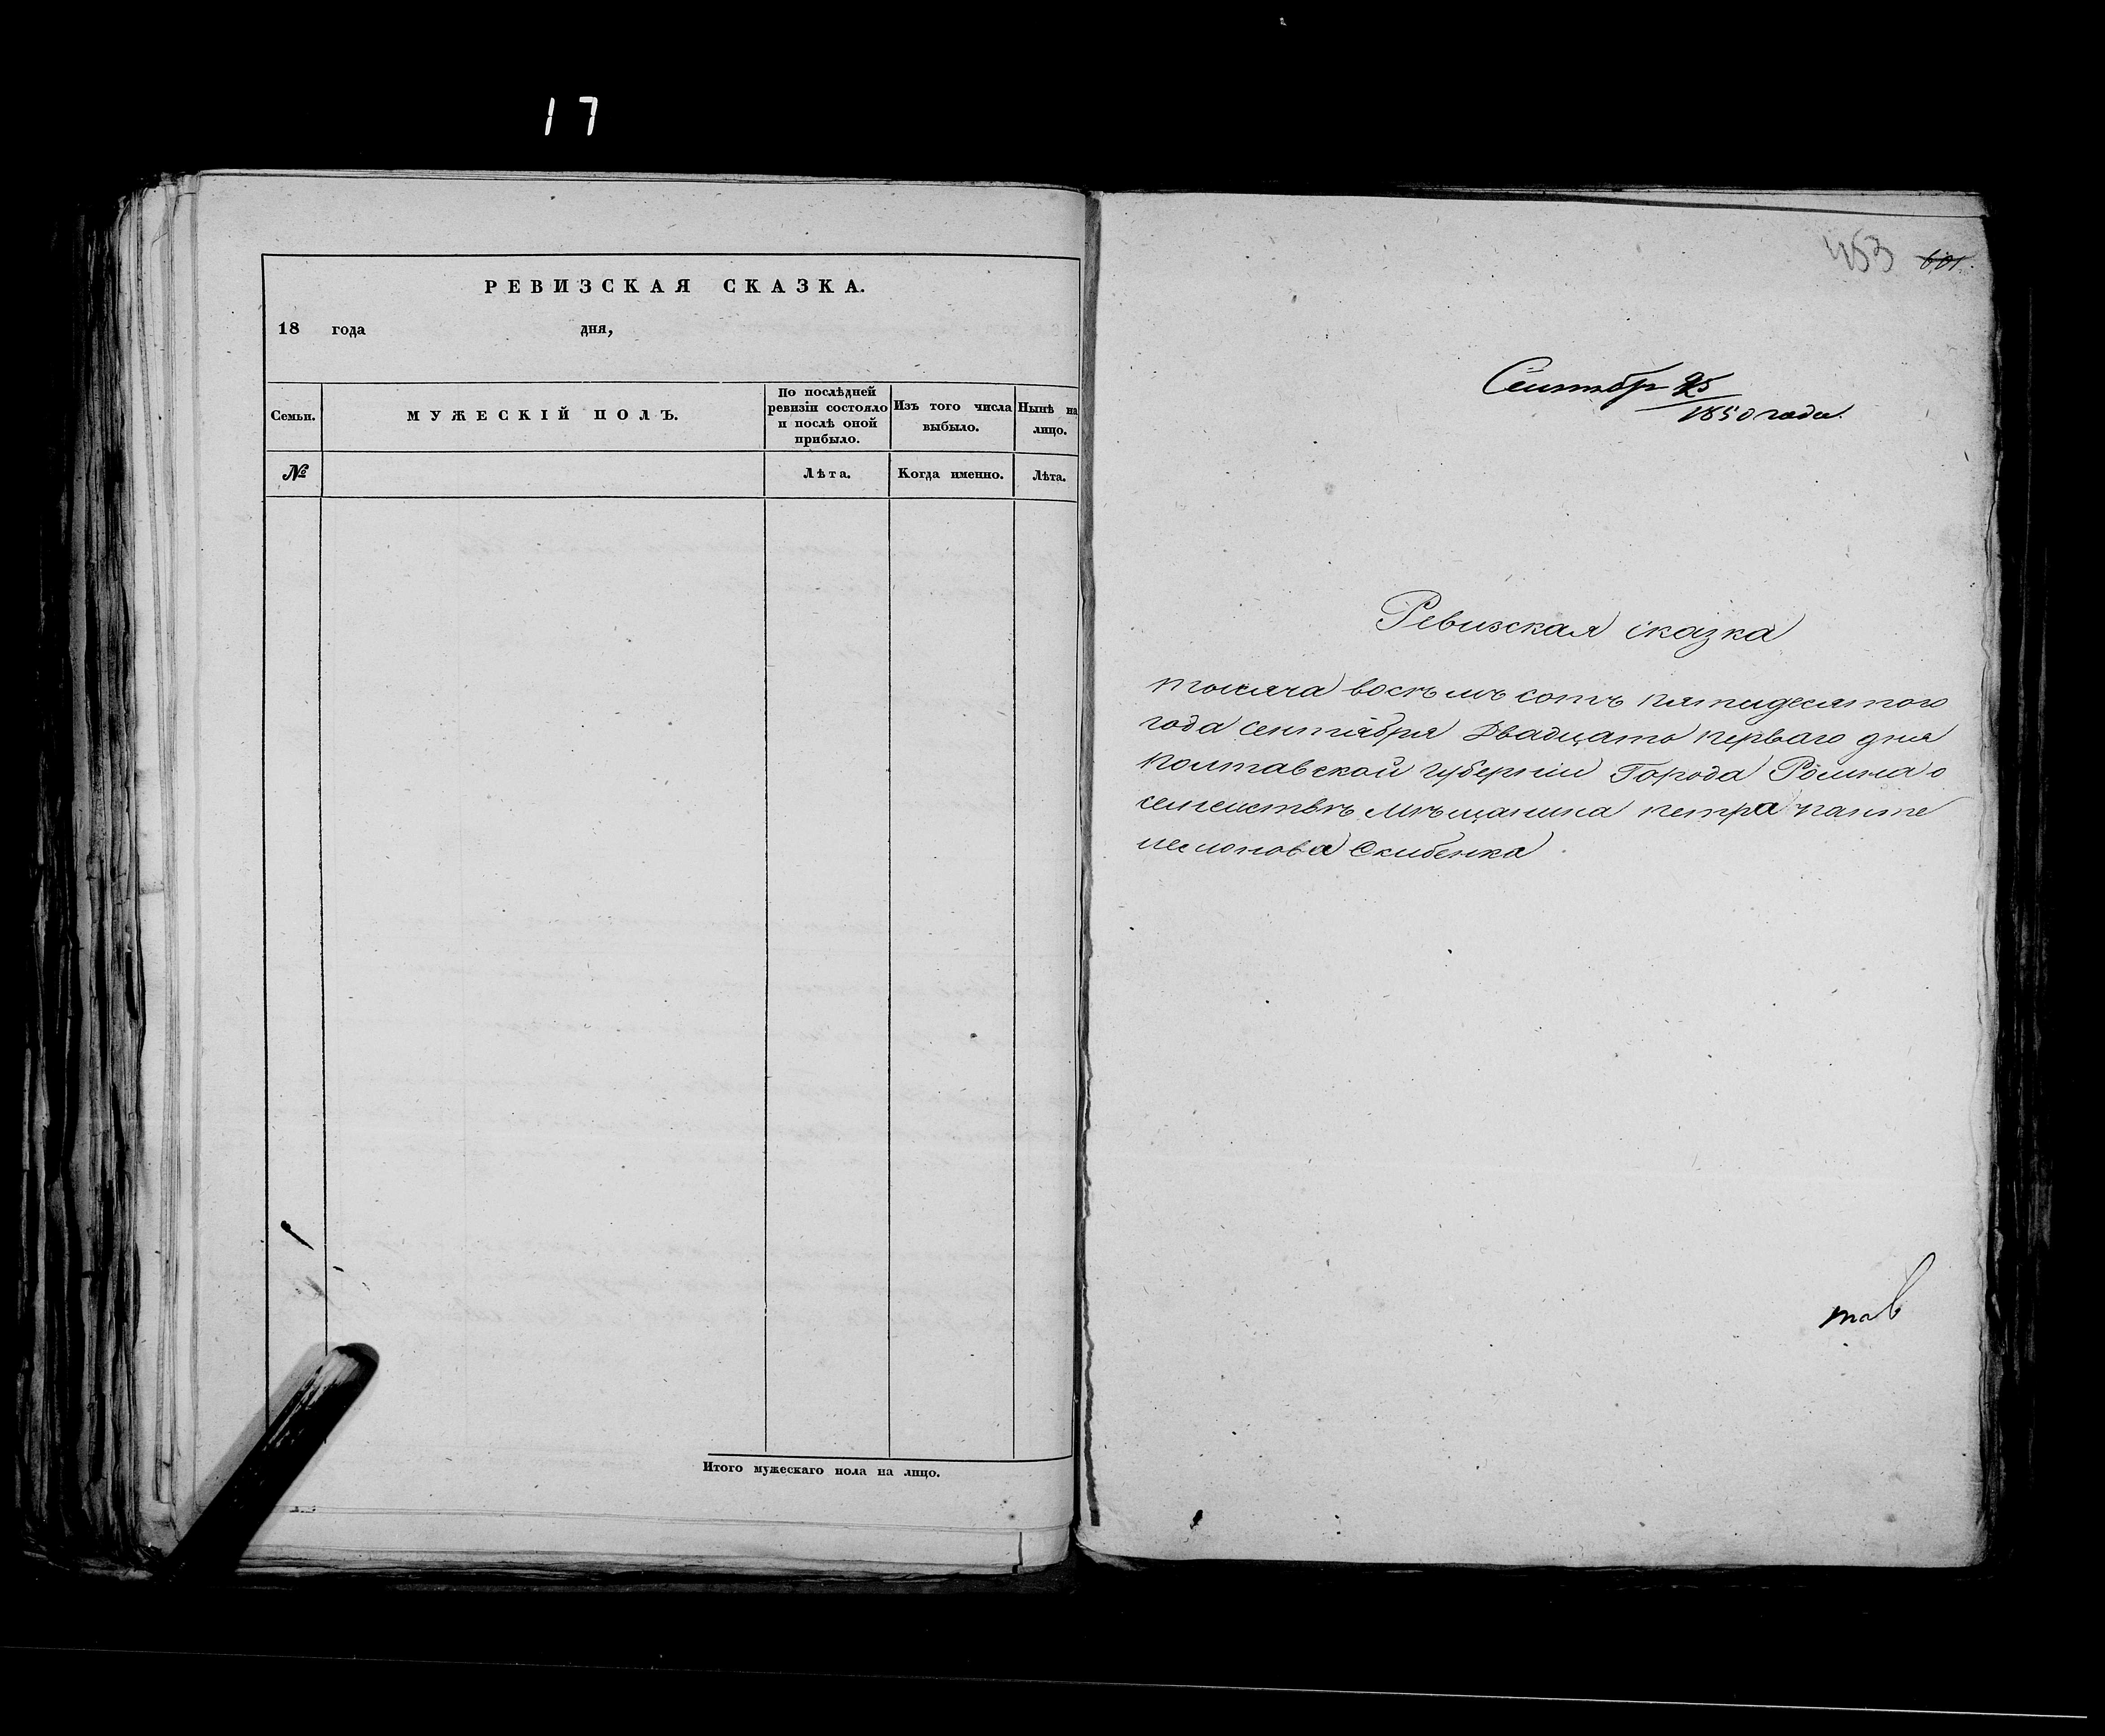 17
РЕВИЗСКАЯ СКАЗКА.
18 года дня,
Семьи.
МУЖЕСКІЙ ПОЛЪ.
По послѣдней
ревизіи состояло
и послѣ оной
прибыло.
Изъ того числа
выбыло.
Нынѣ на
лицо.
№
Лѣта.
Когда именно.
Лѣта.
Итого мужескаго пола на лицо.
453 601
Сентябр 25
1850 года.
Ревизская сказка
тысяча восѣмъ сотъ пятидесятого
года сентября Двадцато перваго дня
Полтавской губерніи Города Ромна о
семействѣ мѣщанина Петра Панте
леимонова Скибенка